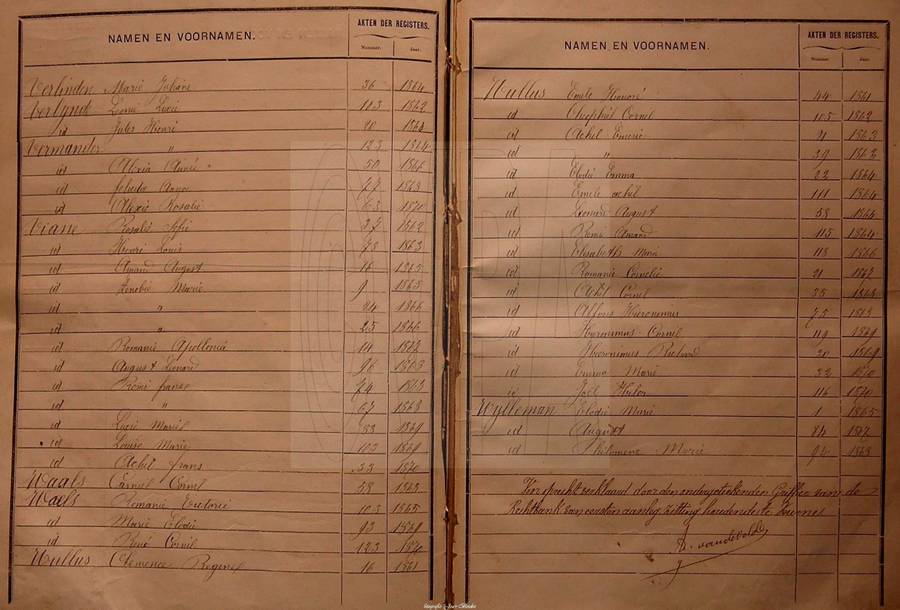 NAMEN EN VOORNAMEN. AKTEN DER REGISTERS.
Nummer. Jaar.
Verlinden Marie Juliane 36 1864
Verlynde Leonie Lucie 103 1862
id Jules Henri 20 1864
Vermander " 123 1864
id Alixia Annie " 50 1866
id Anna 77 1863
id Alixie Rosalie 63 1870
Viane Rosalie Sofie 37 1862
id Henri Louis 78 1863
id Amand August 16 1865
id Zenobie Marie 9 1865
id " 24 1866
id " 25 1866
id Romanie Apollonia 14 1862
id August Léonard 96 1863
id Remi frans 74 1863
id " 67 1868
id Marie 1869
id Louise Marie 103 1869
id Achil frans 33 1870
Waals Camiel Cornel 58 1865
Waels Romanie 103 1865
id Marie Elodie 93 1869
id René Cornil 123 1870
Wullus Clemence Regine 16 1861
NAMEN EN VOORNAMEN. AKTEN DER REGISTERS.
Nummer. Jaar.
Wullus Emile Honoré 44 1861
id Theophiel Cornil 105 1862
id Achil Emerie 21 1863
id " 39 1863
id Elodie Emma 22 1864
id Emile Achil 111 1864
id Leonard August 58 1864
id Remi Amand 115 1864
id Elisabeth Marie 118 1866
id Romanie Cornelie 21 1867
id Achil Cornil 35 1868
id Alfons Hieronimus 75
id Hieronimus Cornil 119 1869
id Hieronimus Richard 20 1869
id Emma Marie 32 1870
id Joël 116 1870
Wylleman Elodie Marie 1 1865
id August 84 1867
id Philomene Marie 94 1868
Voor opracht verklaard door den ondergeteekenden Griffier van de
Rechtbank van eersten aanleg zitting houdende te Veurne
vandevelde